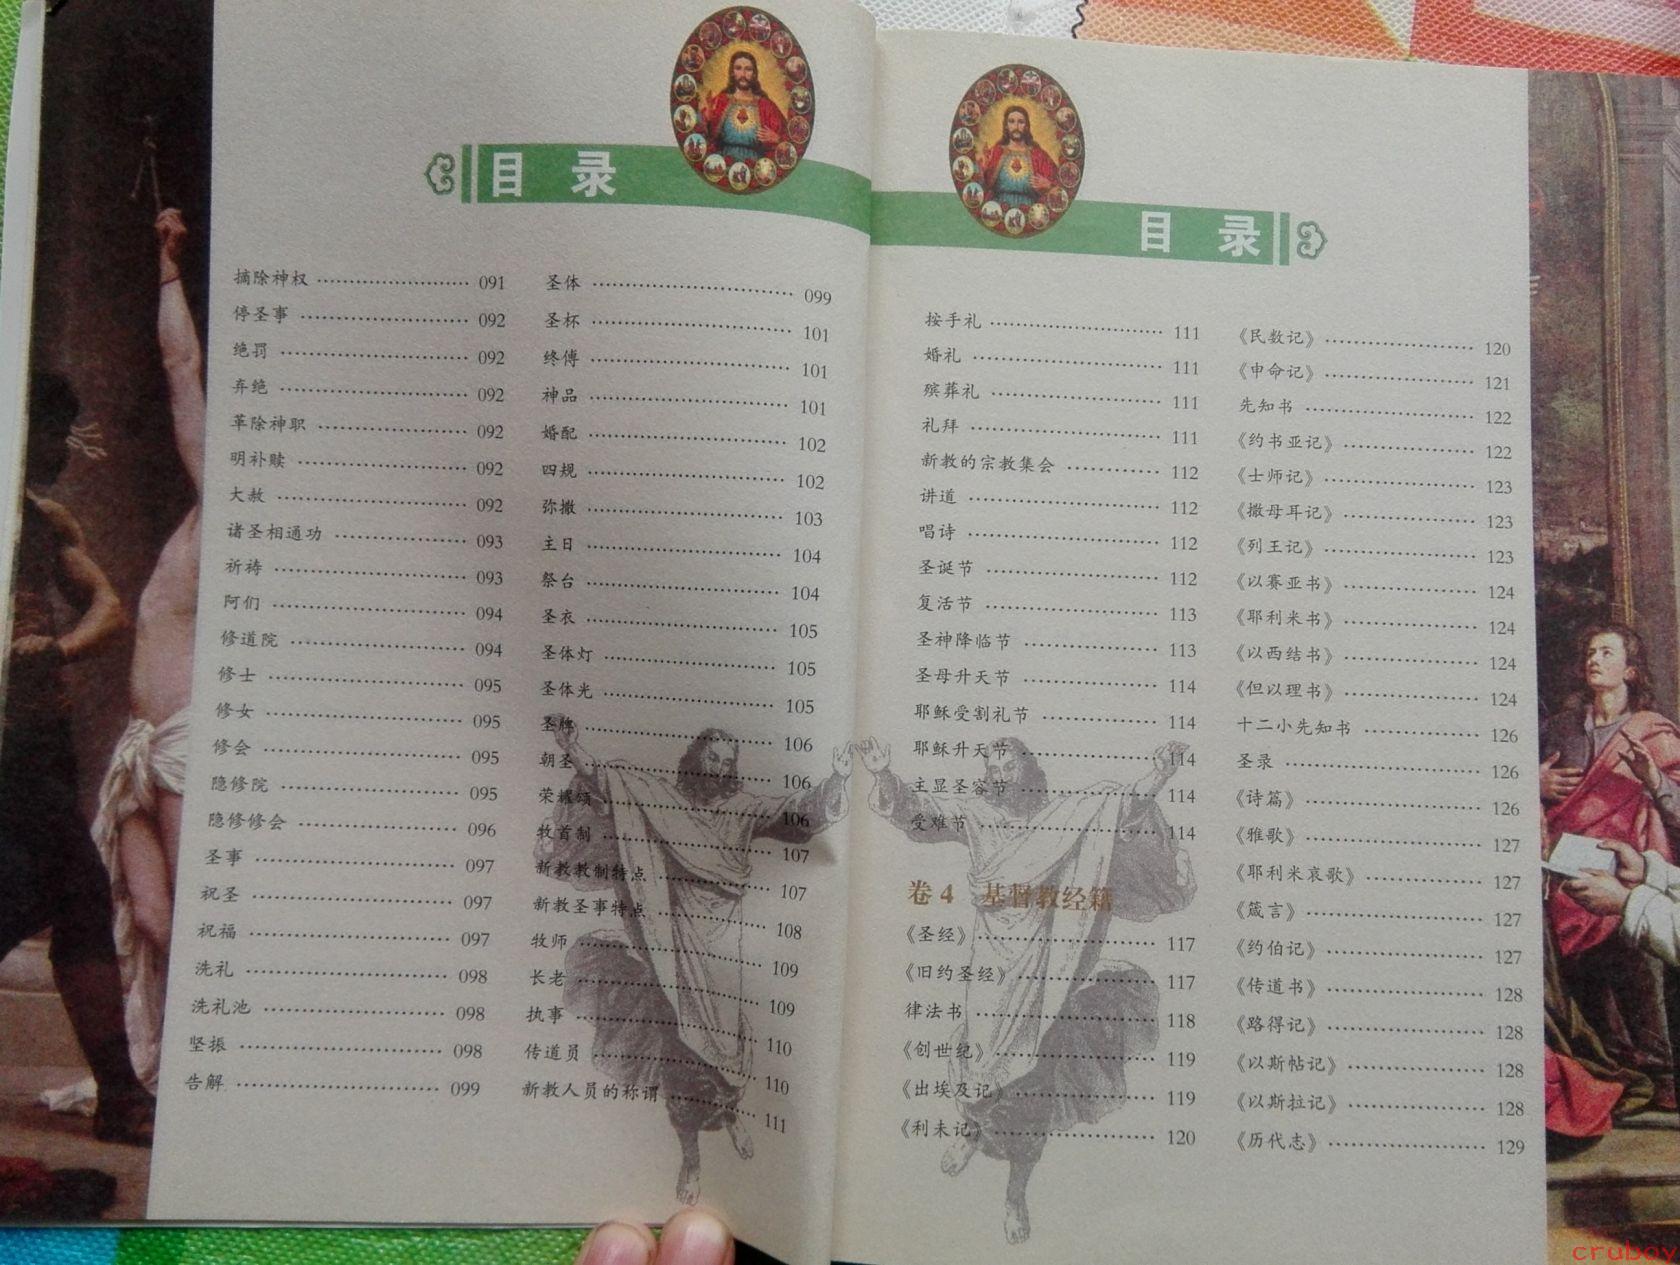 目 录
摘除神权 091
停圣事 092
绝罚 092
弃绝 092
革除神职 092
明补赎 092
大赦 092
诸圣相通功 093
祈祷 093
阿们 094
修道院 094
修士 095
修女 095
修会 095
隐修院 095
隐修修会 096
圣事 097
祝圣 097
祝福 097
洗礼 098
洗礼池 098
坚振 098
告解 099
圣体 099
圣杯 101
终傅 101
神品 101
婚配 102
四规 102
弥撒 103
主日 104
祭台 104
圣衣 105
圣体灯 105
圣体光 105
圣牌 106
朝圣 106
荣耀颂 106
牧首制 107
新教教制特点 107
新教圣事特点 108
牧师 109
长老 109
执事 110
传道员 110
新教人员的称谓 111
目 录
按手礼 111
婚礼 111
殡葬礼 111
礼拜 111
新教的宗教集会 112
讲道 112
唱诗 112
圣诞节 112
复活节 113
圣神降临节 113
圣母升天节 114
耶稣受割礼节 114
耶稣升天节 114
主显圣容节 114
受难节 114
卷 4 基督教经籍
《圣经》 117
《旧约圣经》 117
律法书 118
《创世纪》 119
《出埃及记》 119
《利未记》 120
《民数记》 120
《申命记》 121
先知书 122
《约书亚记》 122
《士师记》 123
《撒母耳记》 123
《列王记》 123
《以赛亚书》 124
《耶利米书》 124
《以西结书》 124
《但以理书》 124
十二小先知书 126
圣录 126
《诗篇》 126
《雅歌》 127
《耶利米哀歌》 127
《箴言》 127
《约伯记》 127
《传道书》 128
《路得记》 128
《以斯帖记》 128
《以斯拉记》 128
《历代志》 129
cruboy